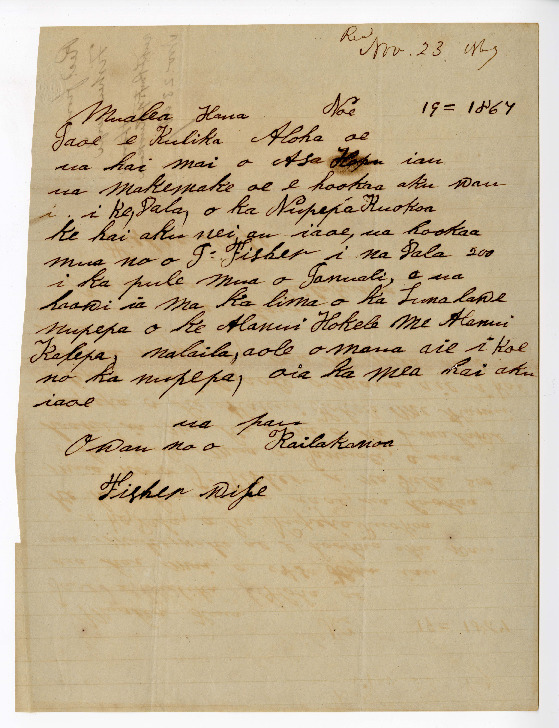 Rec
Nov. 23
Mualea Hana Nov 19 = 1867
Iaoe e Kulika Aloha oe
ua hai mai o Asa Hopu iau
ua makemake oe e hookaa aku wau
i ke Dala, o ka Nupepa Kuokoa
ke hai aku nei au iaoe, ua hookaa
mua no o J. Fisher i na Dala 200
i ka pule mua o Januali, a ua
haawi ia ma ka lima o ka Luna lawe
nupepa o ke Alanui Hokele me Alanui
Kalepa, nalaila, aole o maua aie i koe
no ka nupepa, oia ka mea hai aku
iaoe
ua pau
Owau no o Kailakanoa
Fisher wife